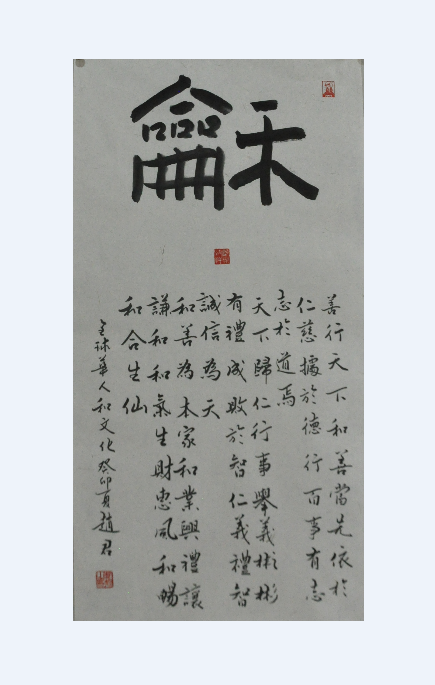 龢
善行天下和善當先依於
仁慈據於德行百事有志
志於道焉
天下歸仁行事舉義彬彬
有禮成敗於智仁義禮智
誠信為天
和善為本家和業興禮讓
謙和和氣生財惠風和暢
和合生仙
全球華人和文化癸卯夏趙君